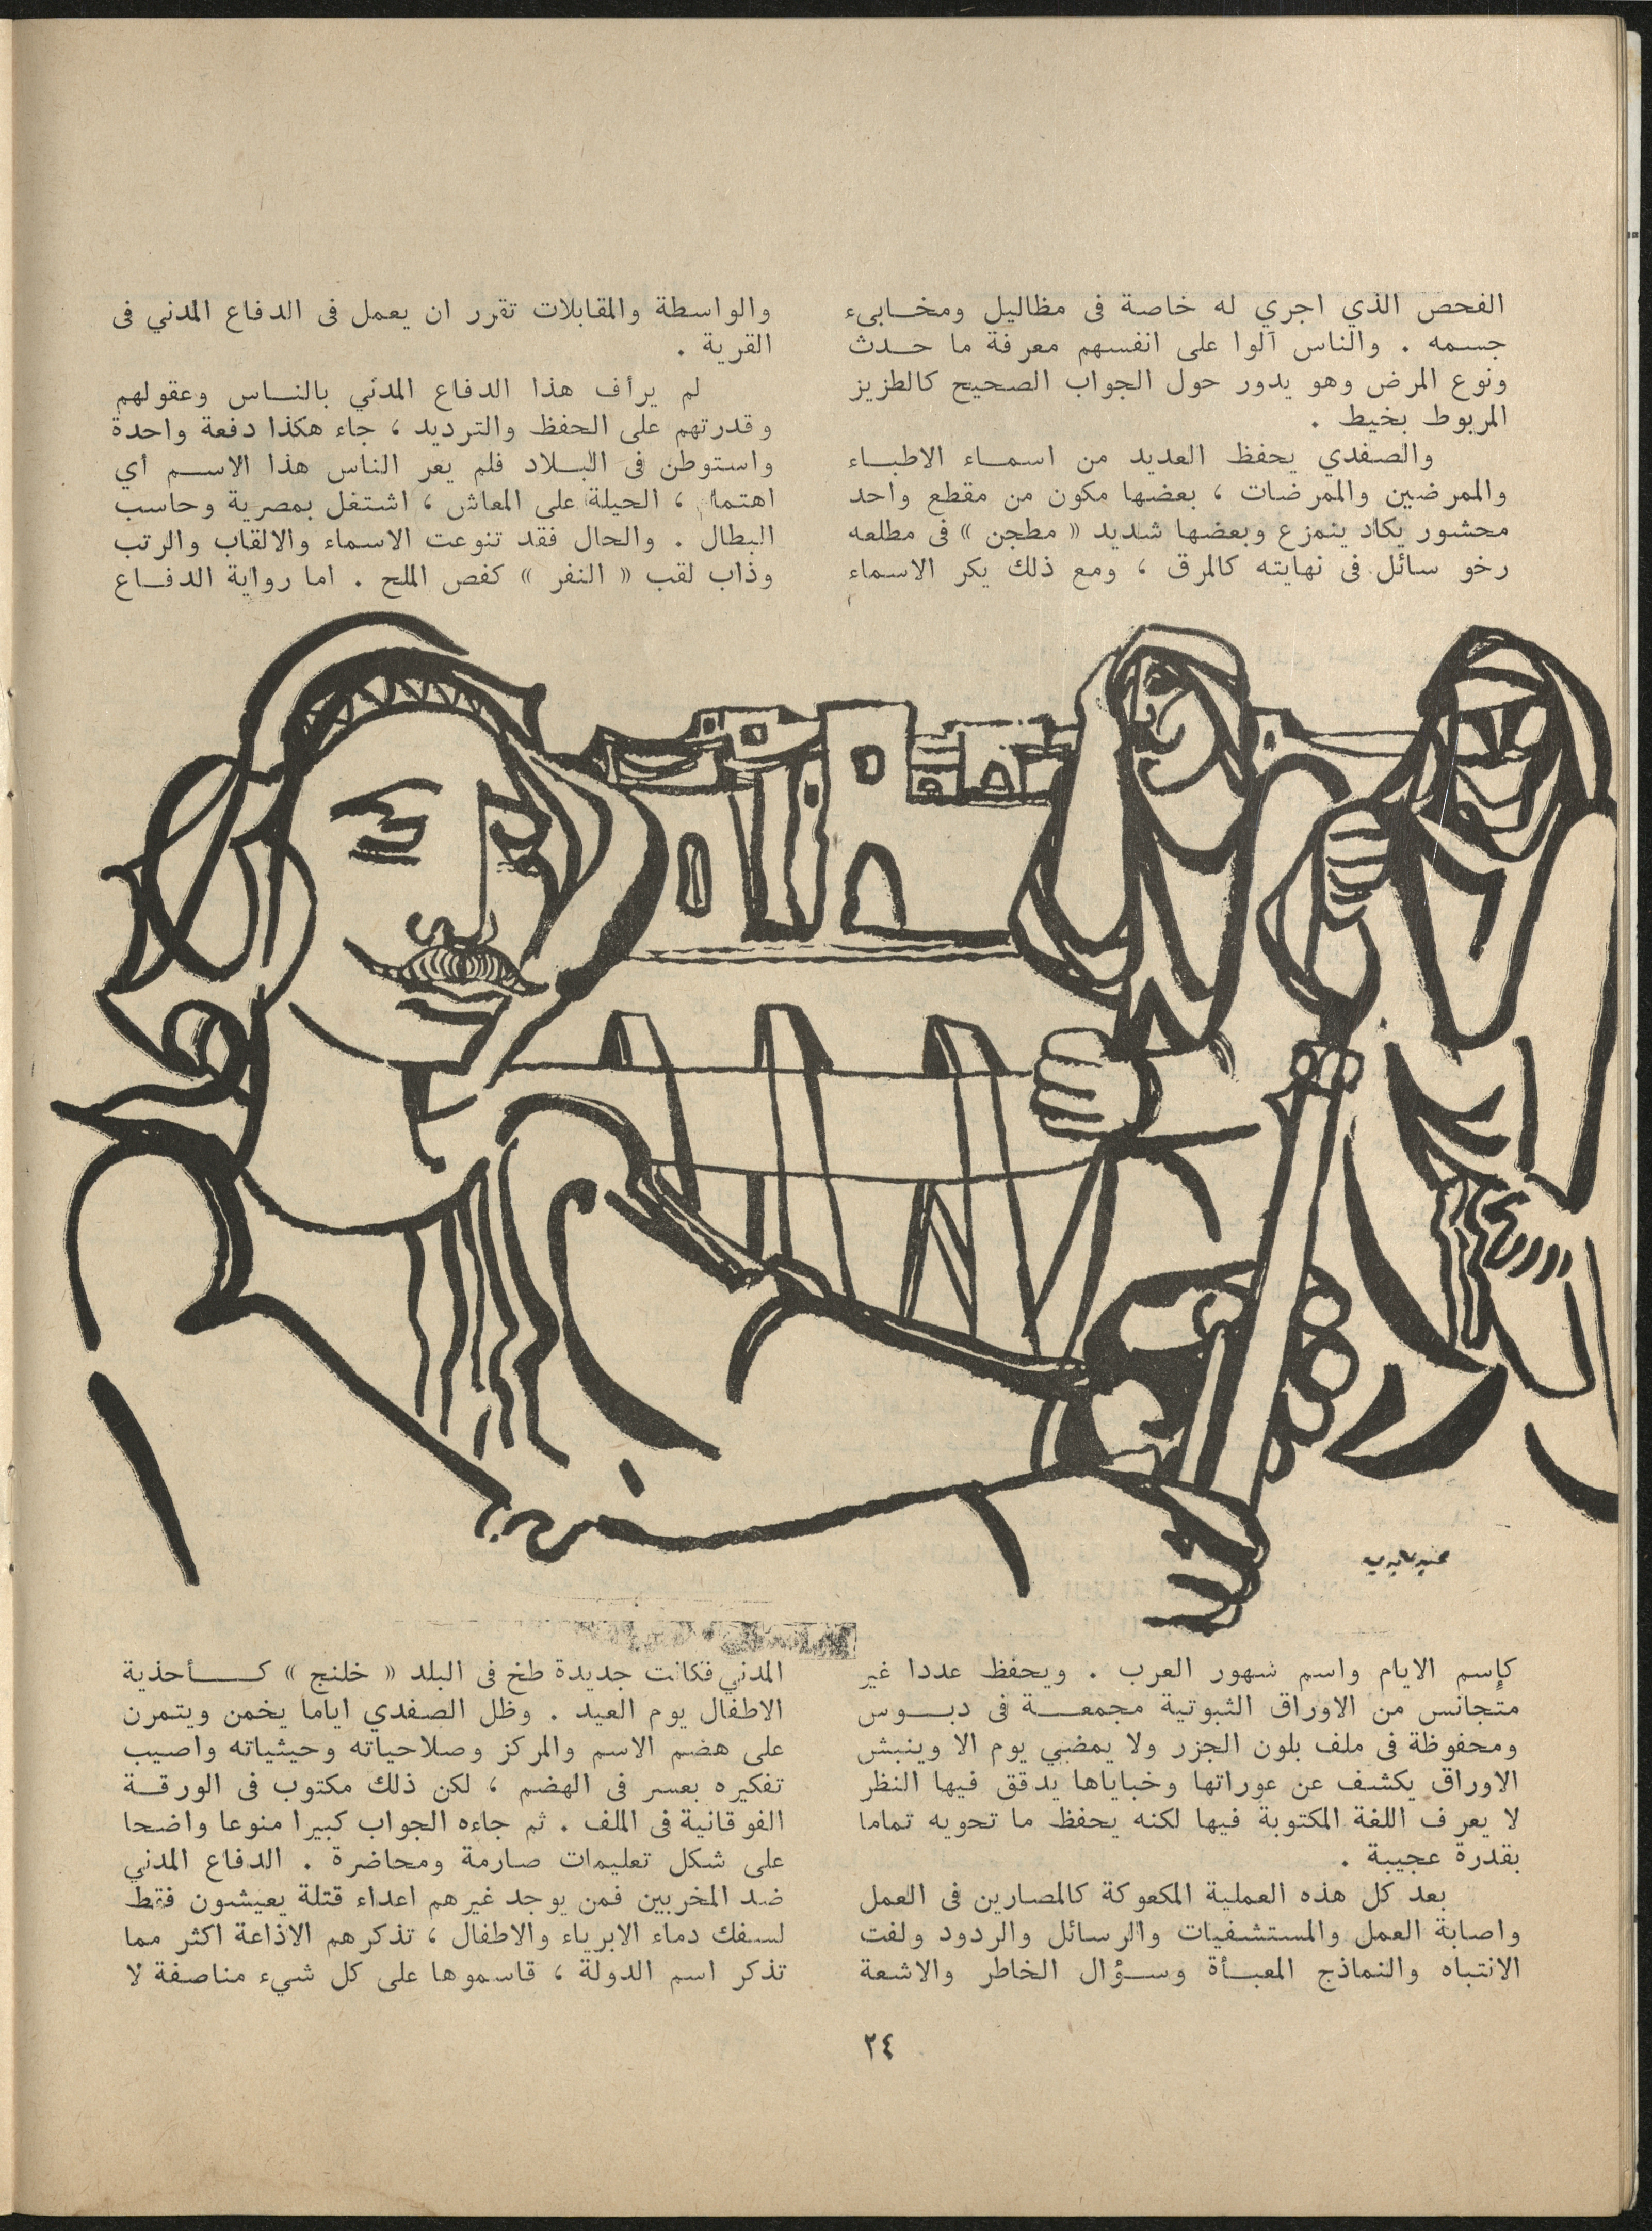 الفحص الذي اجري له خاصة فى مظاليل ومخابىء
جسمه . والناس آلوا على انفسهم معرفة ما حدث
ونوع المرض وهو يدور حول الجواب الصحيح كالطزيز
المربوط بخيط .
والصفدي يحفظ العديد من اسماء الاطباء
والممرضين والممرضات ، بعضها مكون من مقطع واحد
محشور يكاد ينمزع وبعضها شديد « مطجن » فى مطلعه
رخو سائل فى نهايته كالمرق ، ومع ذلك يكر الاسماء
كإسم الايام واسم شهور العرب . ويحفظ عددا غير
متجانس من الاوراق الثبوتية مجمعة فى دبوس
ومحفوظة فى ملف بلون الجزر ولا يمضي يوم الا وينبش
الاوراق يكشف عن عوراتها وخباياها يدقق فيها النظر
لا يعرف اللغة المكتوبة فيها لكنه يحفظ ما تحويه تماما
بقدرة عجيبة .
بعد كل هذه العملية المكعوكة كالمصارين فى العمل
واصابة العمل والمستشفيات والرسائل والردود ولفت
الانتباه والنماذج المعبأة وسؤال الخاطر والاشعة
والواسطة والمقابلات تقرر ان يعمل فى الدفاع المدني فى
القرية .
لم يرأف هذا الدفاع المدني بالناس وعقولهم
وقدرتهم على الحفظ والترديد ، جاء هكذا دفعة واحدة
واستوطن فى البلاد فلم يعر الناس هذا الاسم أي
اهتمام ، الحيلة على المعاش ، اشتغل بمصرية وحاسب
البطال . والحال فقد تنوعت الاسماء والالقاب والرتب
وذاب لقب « النفر » كفص الملح . اما رواية الدفاع
المدني فكانت جديدة طخ فى البلد « خلنج » كأحذية
الاطفال يوم العيد . وظل الصفدي اياما يخمن ويتمرن
على هضم الاسم والمركز وصلاحياته وحيثياته واصيب
تفكيره بعسر فى الهضم ، لكن ذلك مكتوب فى الورقة
الفوقانية فى الملف . ثم جاءه الجواب كبيرا منوعا واضحا
على شكل تعليمات صارمة ومحاضرة . الدفاع المدني
ضد المخربين فمن يوجد غيرهم اعداء قتلة يعيشون فقط
لسفك دماء الابرياء والاطفال ، تذكرهم الاذاعة اكثر مما
تذكر اسم الدولة ، قاسموها على كل شيء مناصفة لا
٢٤